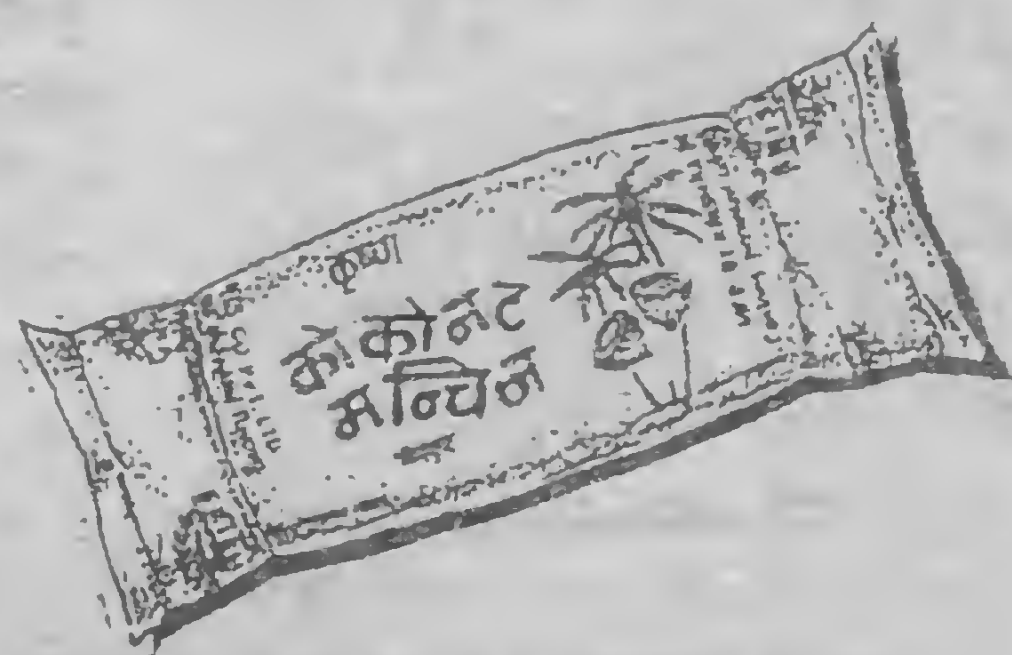 कृष्णा
कोकोनट
मन्चिन